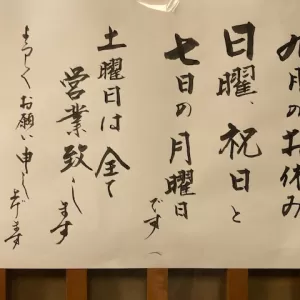 九月のお休み
日曜、祝日と
七日の月曜日
です
土曜日は全て
営業致します
よろしくお願い申し上げます